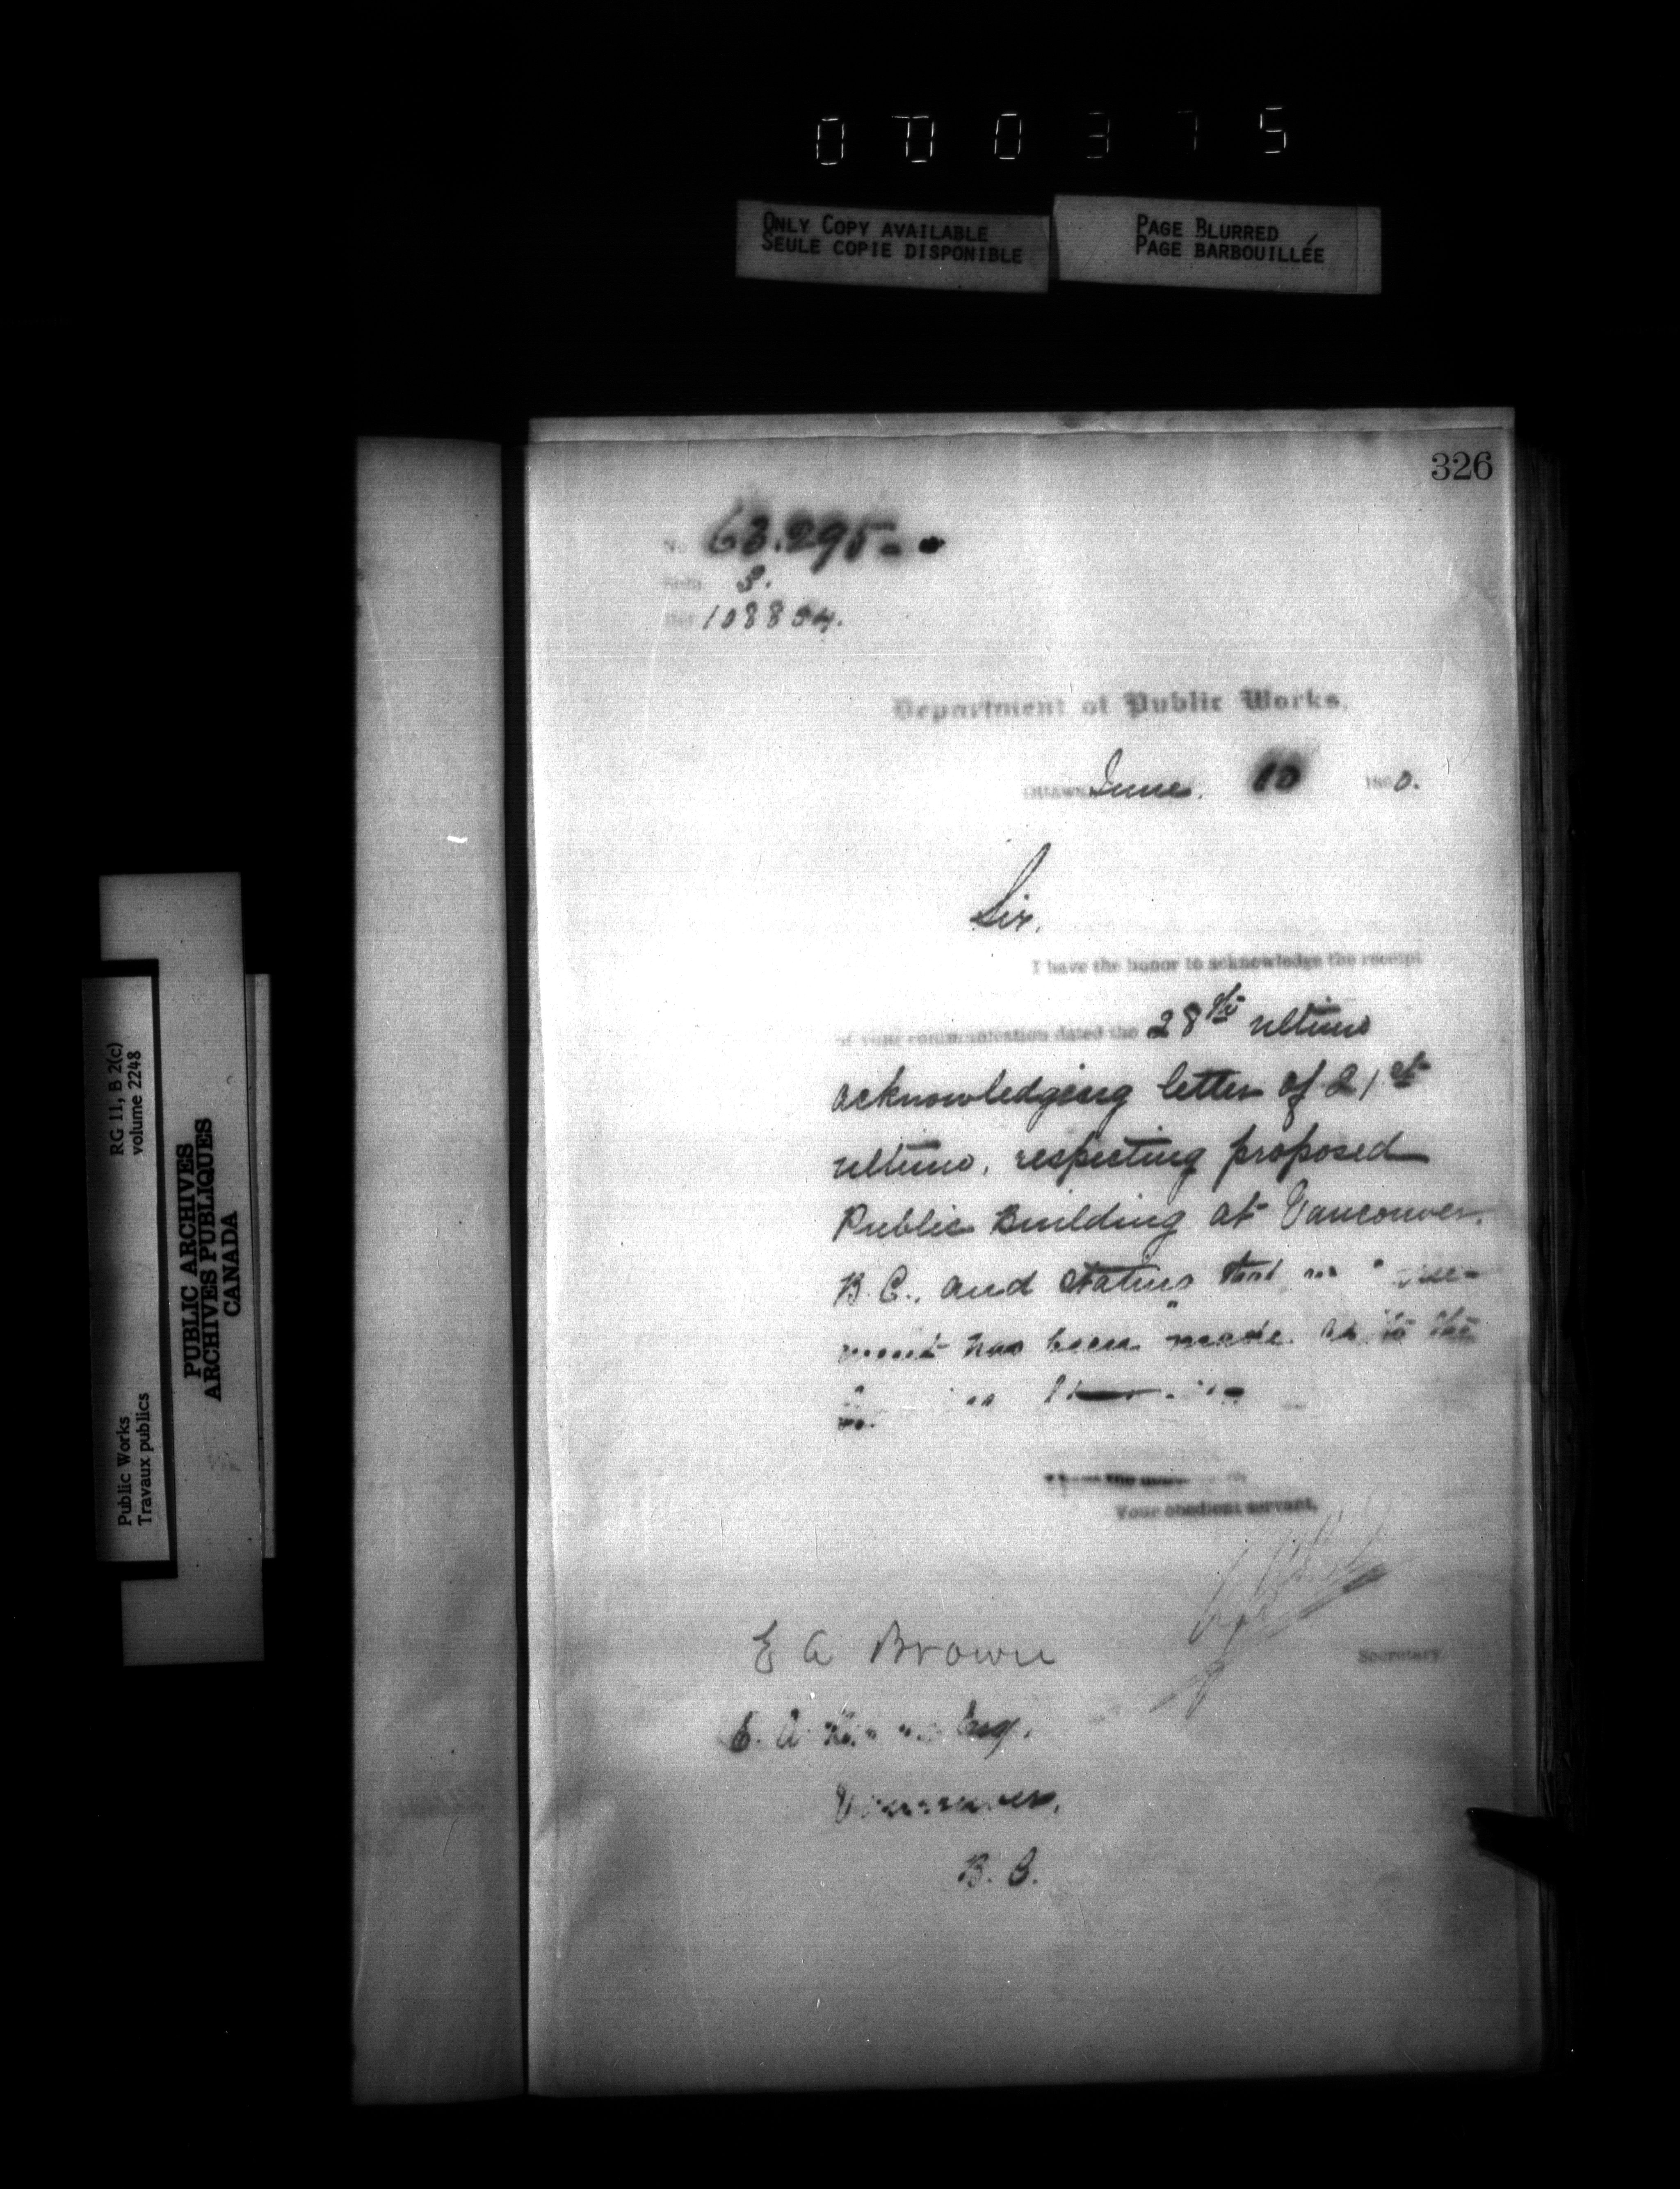 000375
ONLY COPY AVAILABLE
SEULE COPIE DISPONIBLE
PAGE BLURRED
PAGE BARBOUILLÉE
326
No. 63.295.
3.
108854.
Department of Public Works,
OTTAWA June. 10 1890.
Sir,
I have the honor to acknowledge the receipt
of your communication dated the 28th ultimo
acknowledging letter of 21st
ultimo, respecting proposed
Public Building at Vancouver.
B.C., and stating that
ment has been made as to the
Your obedient servant,
Secretary
E A Brown
E. A. Esq.
Vancouver,
B. C.
RG 11, B 2(c)
volume 2248
PUBLIC ARCHIVES
ARCHIVES PUBLIQUES
CANADA
Public Works
Travaux publics